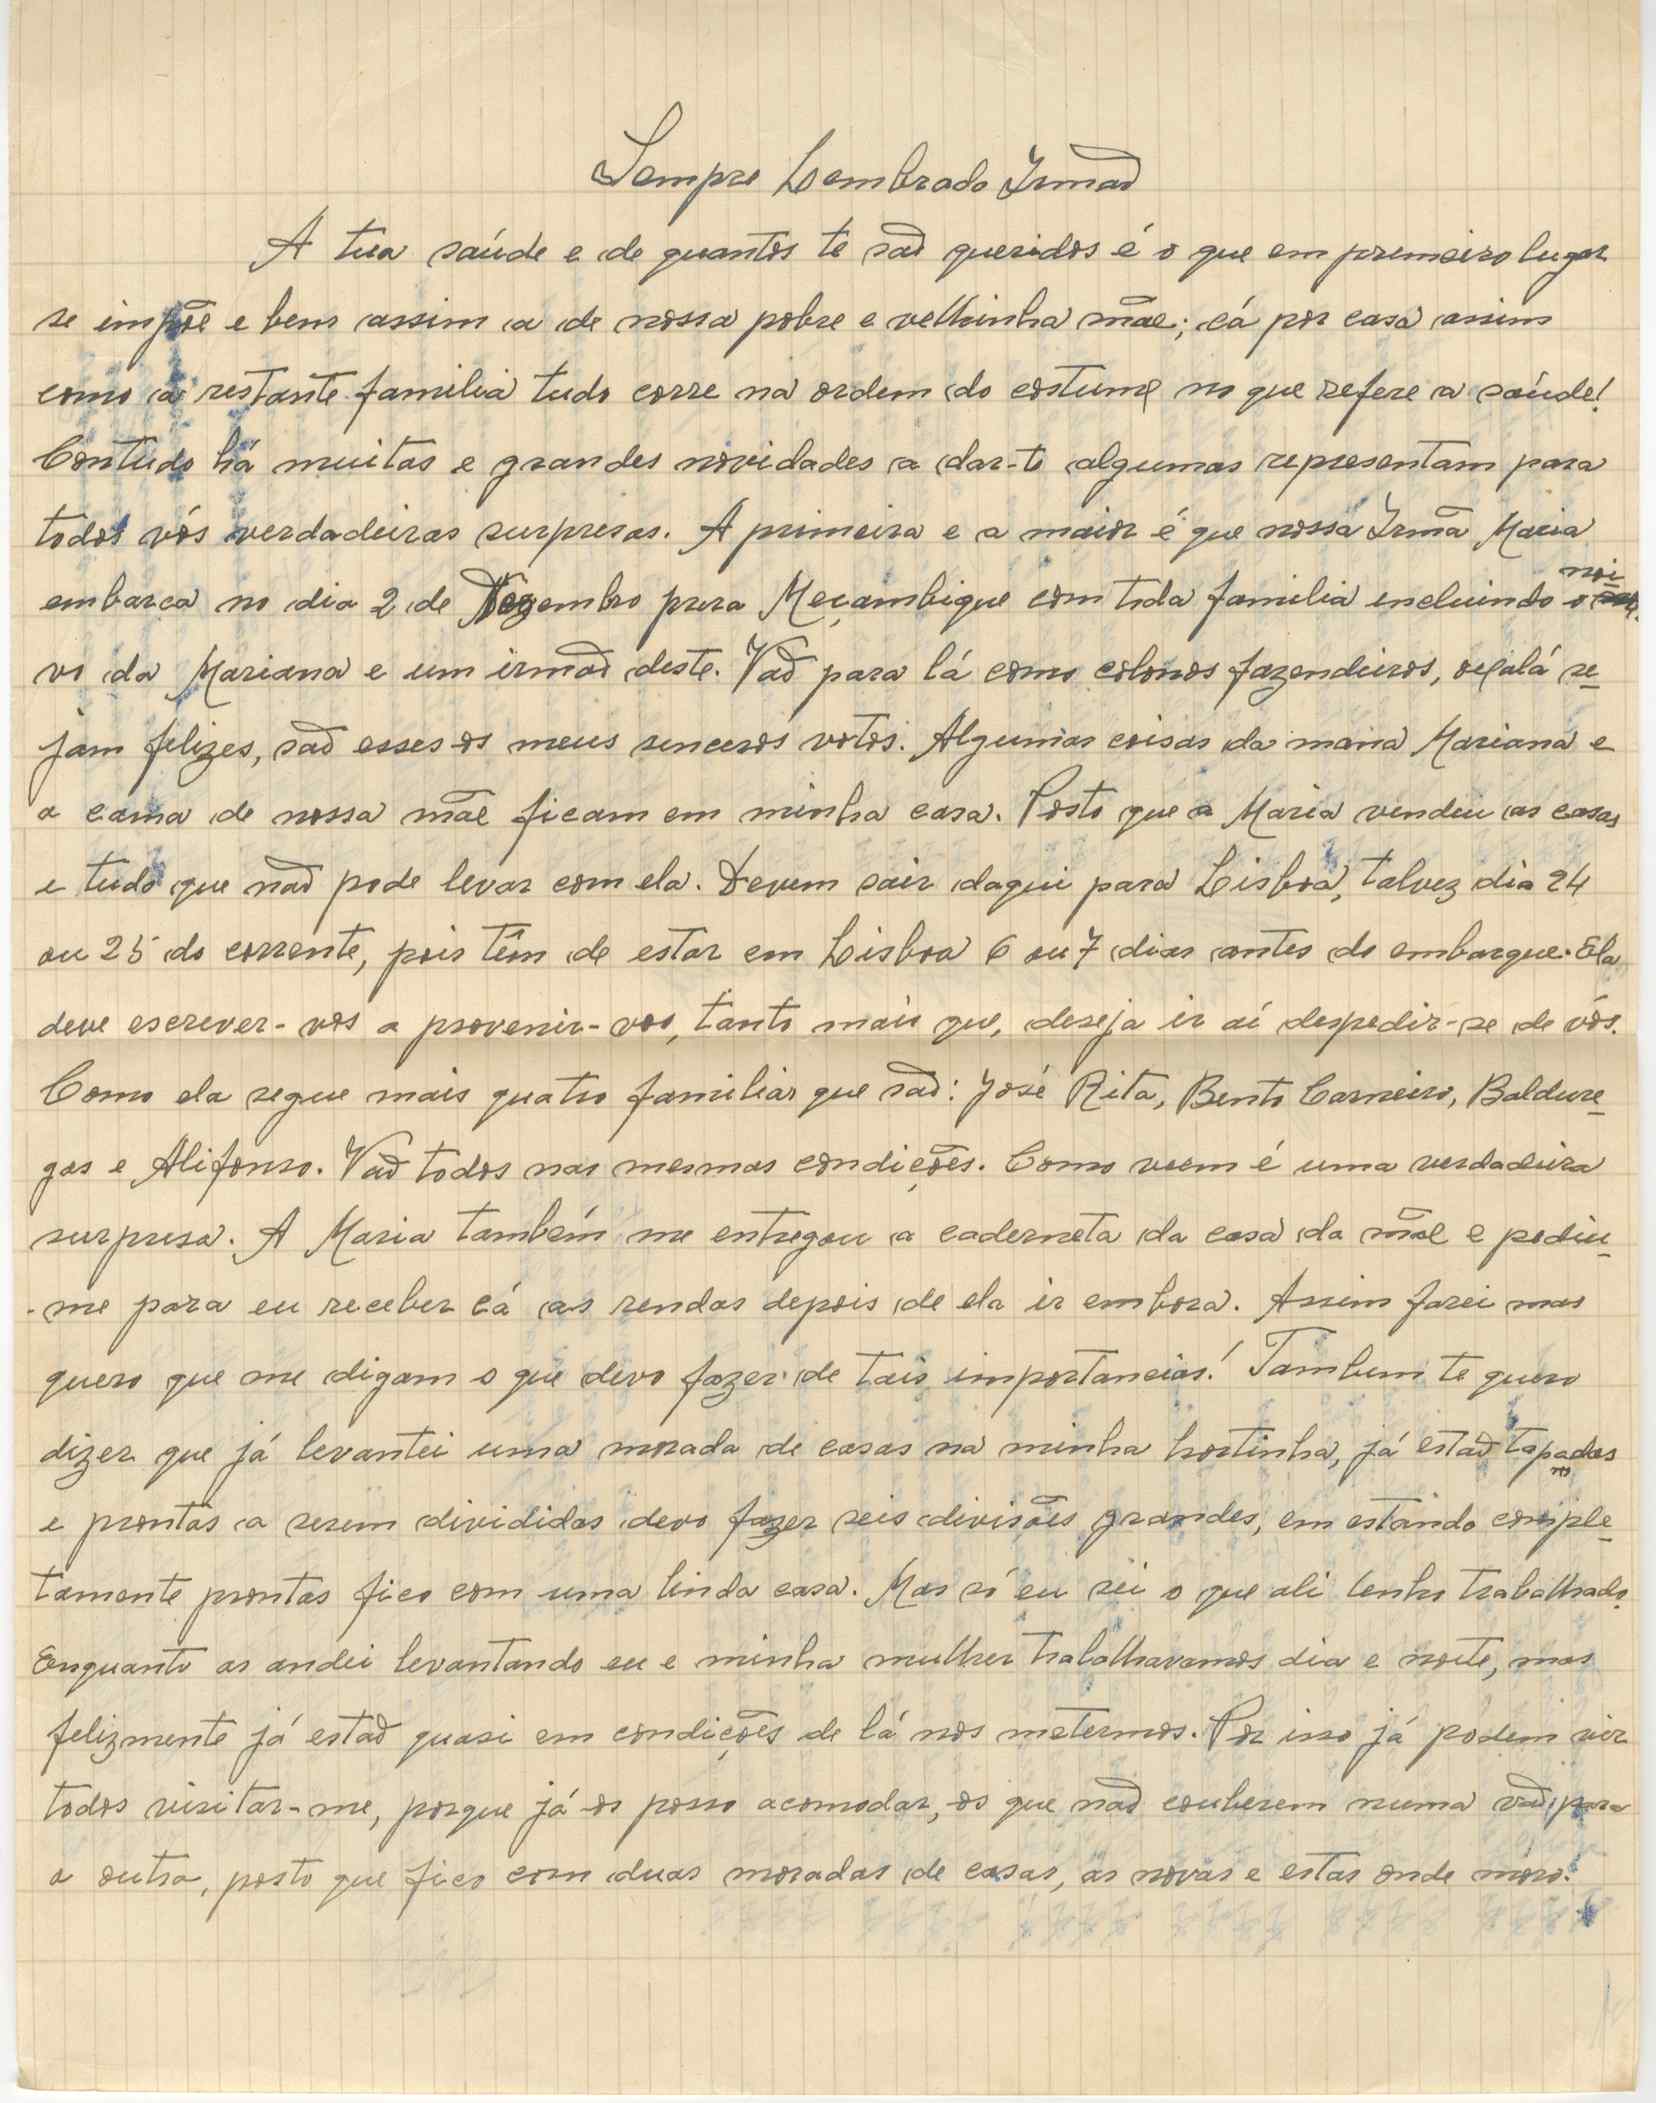 Sempre Lembrado Irmão
A tua saúde e de quantos te são queridos é o que em premeiro lugar
se impõe e bem assim a de nossa pobre e velhinha mãe; cá por casa assim
como a restante familia tudo corre na ordem do costume no que refere a saúde!
Contudo há muitas e grandes novidades a dar-te algumas representam para
todos vós verdadeiras surpresas. A primeira e a maior é que nossa Irmã Maria
embarca no dia 2 de Dezembro para Meçambique com toda familia incluindo o noi
vo da Mariana e um irmão deste. Vão para lá como colonos fazendeiros, oxalá se-
jam felizes, são esses os meus senceros votos. Algumas coisas da mana Mariana e
a cama de nossa mãe ficam em minha casa. Posto que a Maria vendeu as casas
e tudo que não pode levar com ela. Devem sair daqui para Lisboa, talvez dia 24
ou 25 do corrente, pois têm de estar em Lisboa 6 ou 7 dias antes do embarque. Ela
deve escrever-vos a prevenir-vos, tanto mais que, deseja ir aí despedir-se de vós.
Como ela segue mais quatro familias que são: José Rita, Bento Carneiro, Baldure-
gas e Alifonso. Vão todos nas mesmas condições. Como veem é uma verdadeira
surpresa. A Maria também me entregou a caderneta da casa da mãe e pediu-
-me para eu receber cá as rendas depois de ela ir embora. Assim farei mas
quero que me digam o que devo fazer de tais importancias! Tambem te quero
dizer que já levantei uma morada de casas na minha hortinha, já estão tapadas
e prontas a serem divididas devo fazer seis divisões grandes, em estando comple-
tamente prontas fico com uma linda casa. Mas só eu sei o que ali tenho trabalhado.
Enquanto as andei levantando eu e minha mulher trabalhavamos dia e noite, mas
felizmente já estão quasi em condições de lá nos metermos. Por isso já podem vir
todos visitar-me, porque já os posso acomodar, os que não couberem numa vão para
a outra, posto que fico com duas moradas de casas, as novas e estas onde moro.